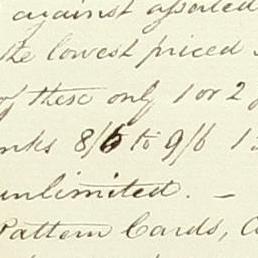 against assorted
the lowest priced
of these only 1 or 2
nks 8/6 to 9/6 1
unlimited. –
Pattern Cards,